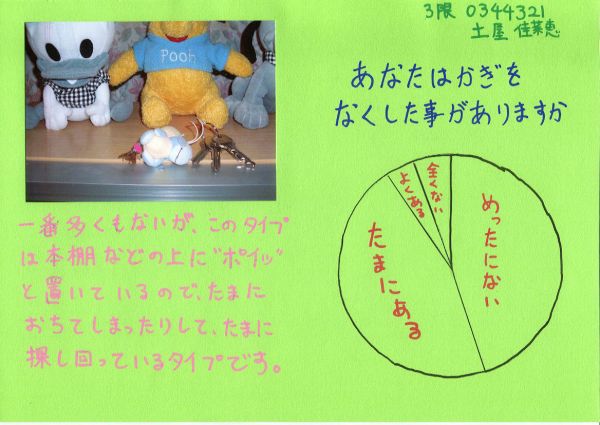 3限 0344321
土屋 佳菜恵
あなたはかぎを
なくした事がありますか
Pooh
一番多くもないが、このタイプ
は本棚などの上に"ポイッ"
と置いているので、たまに
おちてしまったりして、たまに
探し回っているタイプです。
全くない
よくある
めったにない
たまにある